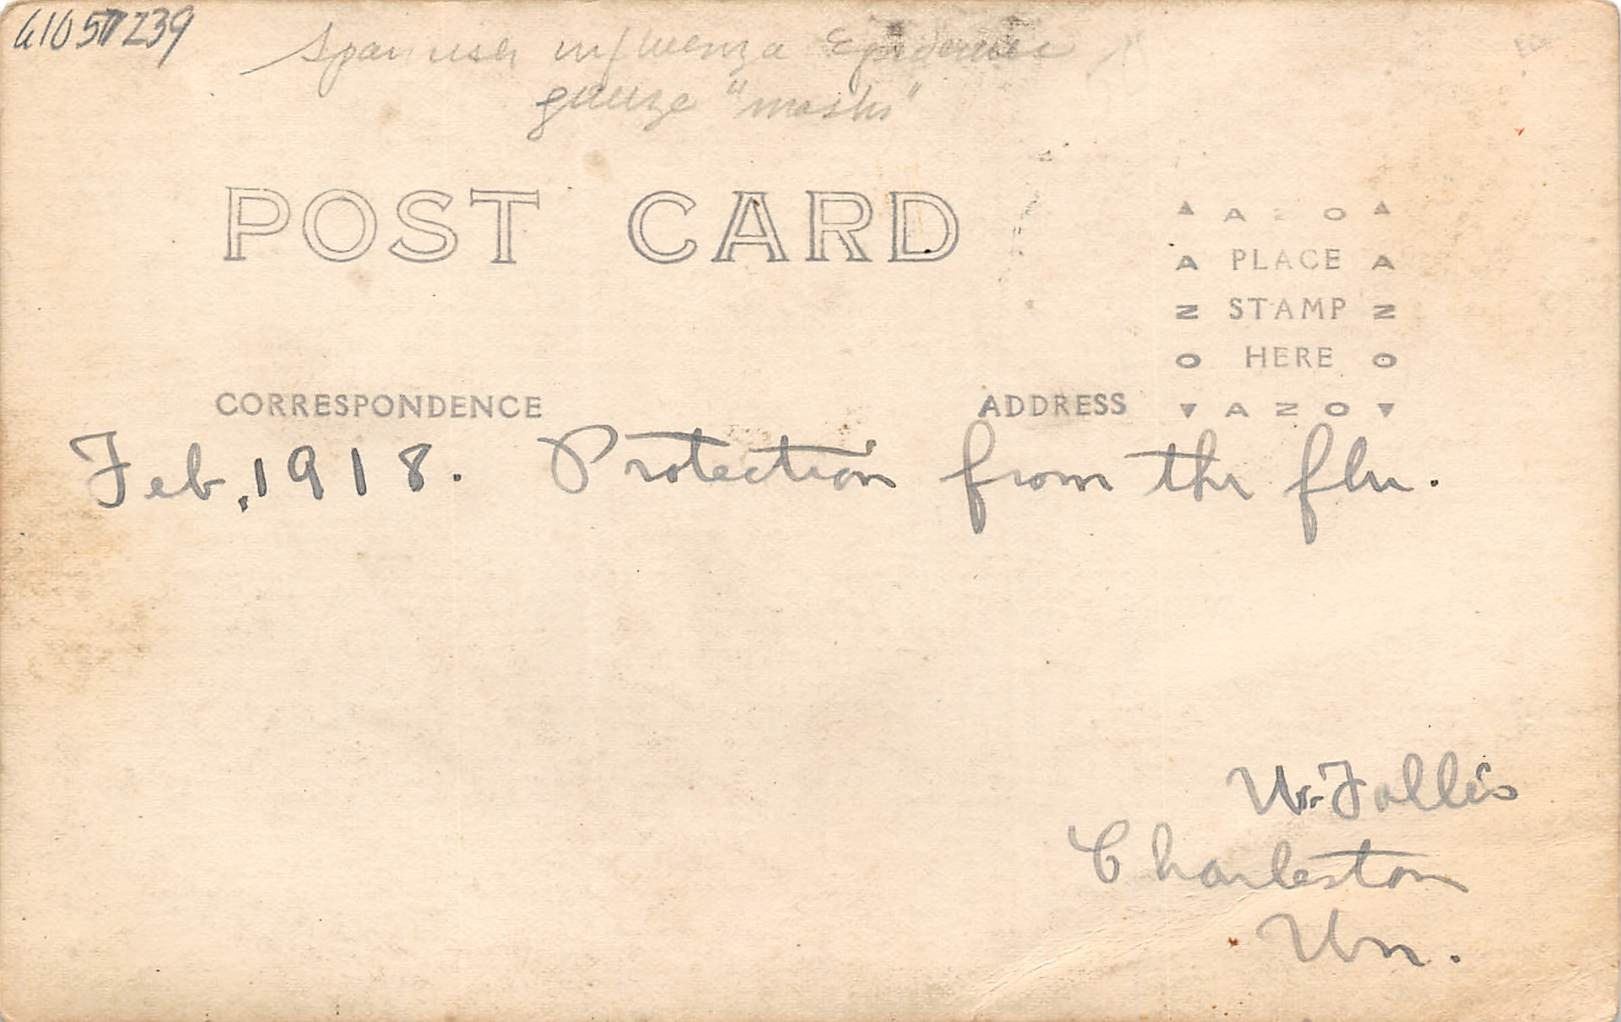 61057239
Spanish influenza Epidemic
gauze "masks"
POST CARD
AZO
PLACE
STAMP
HERE
AZO
CORRESPONDENCE
ADDRESS
Feb, 1918. Protection from the flu.
Follis
Charleston